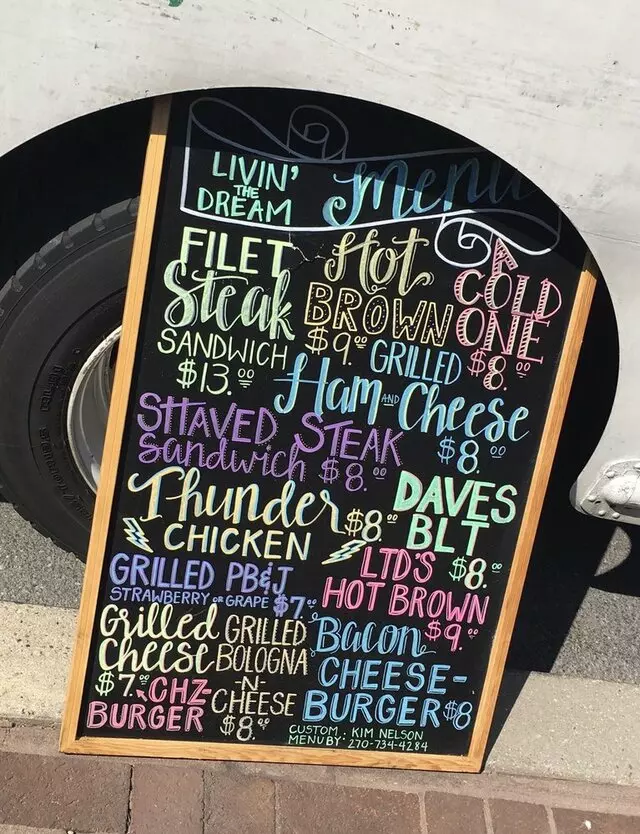 LIVIN'
THE
DREAM
Menu
FILET
Steak
SANDWICH
$13.00
Hot
BROWN
$9.00
A
COLD
ONE
$8.00
GRILLED
Ham AND Cheese
$8.00
SHAVED STEAK
Sandwich $8.00
Thunder
CHICKEN
$8.00
DAVES
BLT
$8.00
GRILLED PB&J
STRAWBERRY OR GRAPE $7.00
LTD'S
HOT BROWN
$9.00
Grilled
Cheese
$7.00
CHZ-
BURGER
GRILLED
BOLOGNA
-N-
CHEESE
$8.00
Bacon
CHEESE-
BURGER $8
CUSTOM : KIM NELSON
MENU BY: 270-734-4284